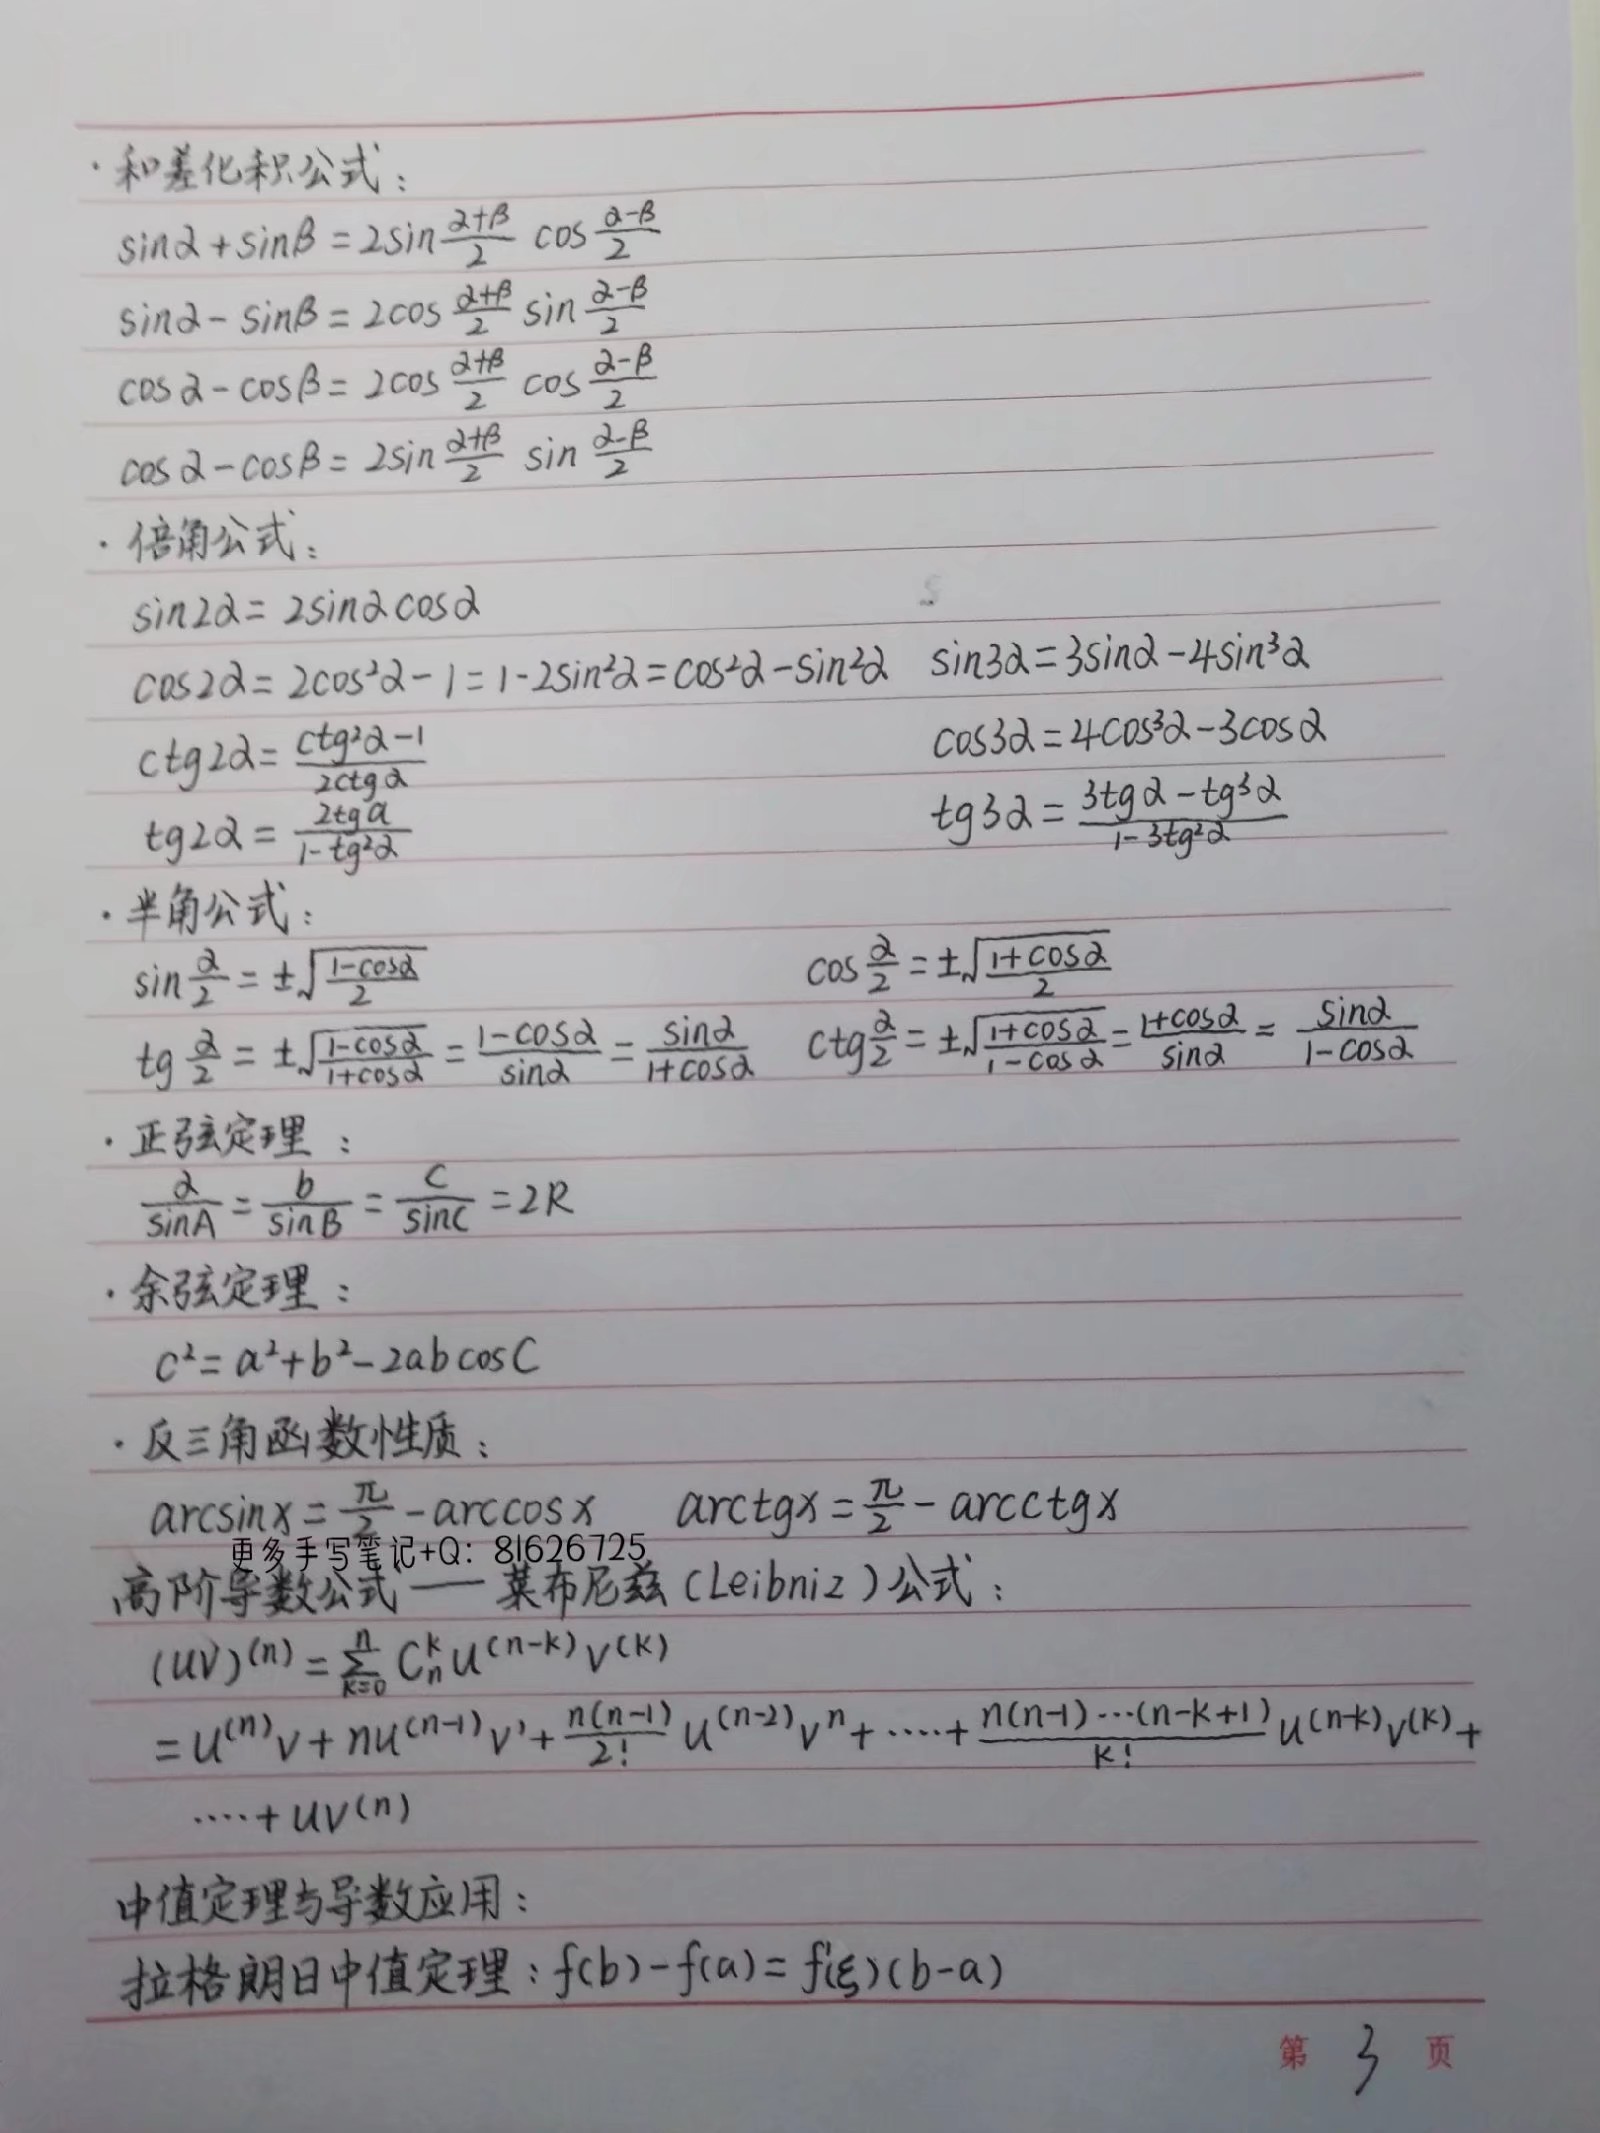 · 和差化积公式:
sinα+sinβ = 2sin (α+β)/2 cos (α-β)/2
sinα-sinβ = 2cos (α+β)/2 sin (α-β)/2
cosα-cosβ = 2cos (α+β)/2 cos (α-β)/2
cosα-cosβ = 2sin (α+β)/2 sin (α-β)/2
· 倍角公式:
sin2α = 2sinαcosα
cos2α = 2cos²α-1 = 1-2sin²α = cos²α-sin²α sin3α = 3sinα-4sin³α
ctg2α = (ctg²α-1)/(2ctgα) cos3α = 4cos³α-3cosα
tg2α = (2tga)/(1-tg²α) tg3α = (3tgα-tg³α)/(1-3tg²α)
· 半角公式:
sin α/2 = ±√((1-cosα)/2) cos α/2 = ±√((1+cosα)/2)
tg α/2 = ±√((1-cosα)/(1+cosα)) = (1-cosα)/sinα = sinα/(1+cosα) ctg α/2 = ±√((1+cosα)/(1-cosα)) = (1+cosα)/sinα = sinα/(1-cosα)
· 正弦定理:
α/sinA = b/sinB = c/sinC = 2R
· 余弦定理:
c² = a²+b²-2abcosC
· 反三角函数性质:
arcsinx = π/2 - arccosx arctgx = π/2 - arcctgx
更多手写笔记+Q: 81626725
高阶导数公式——莱布尼兹(Leibniz)公式:
(uv)^(n) = ∑_{k=0}^{n} C_n^k u^(n-k) v^(k)
= u^(n)v + nu^(n-1)v' + n(n-1)/2! u^(n-2)v^n + ····· + n(n-1)···(n-k+1)/k! u^(n-k)v^(k) +
····+ uv^(n)
中值定理与导数应用:
拉格朗日中值定理: f(b)-f(a) = f'(ξ)(b-a)
第 3 页